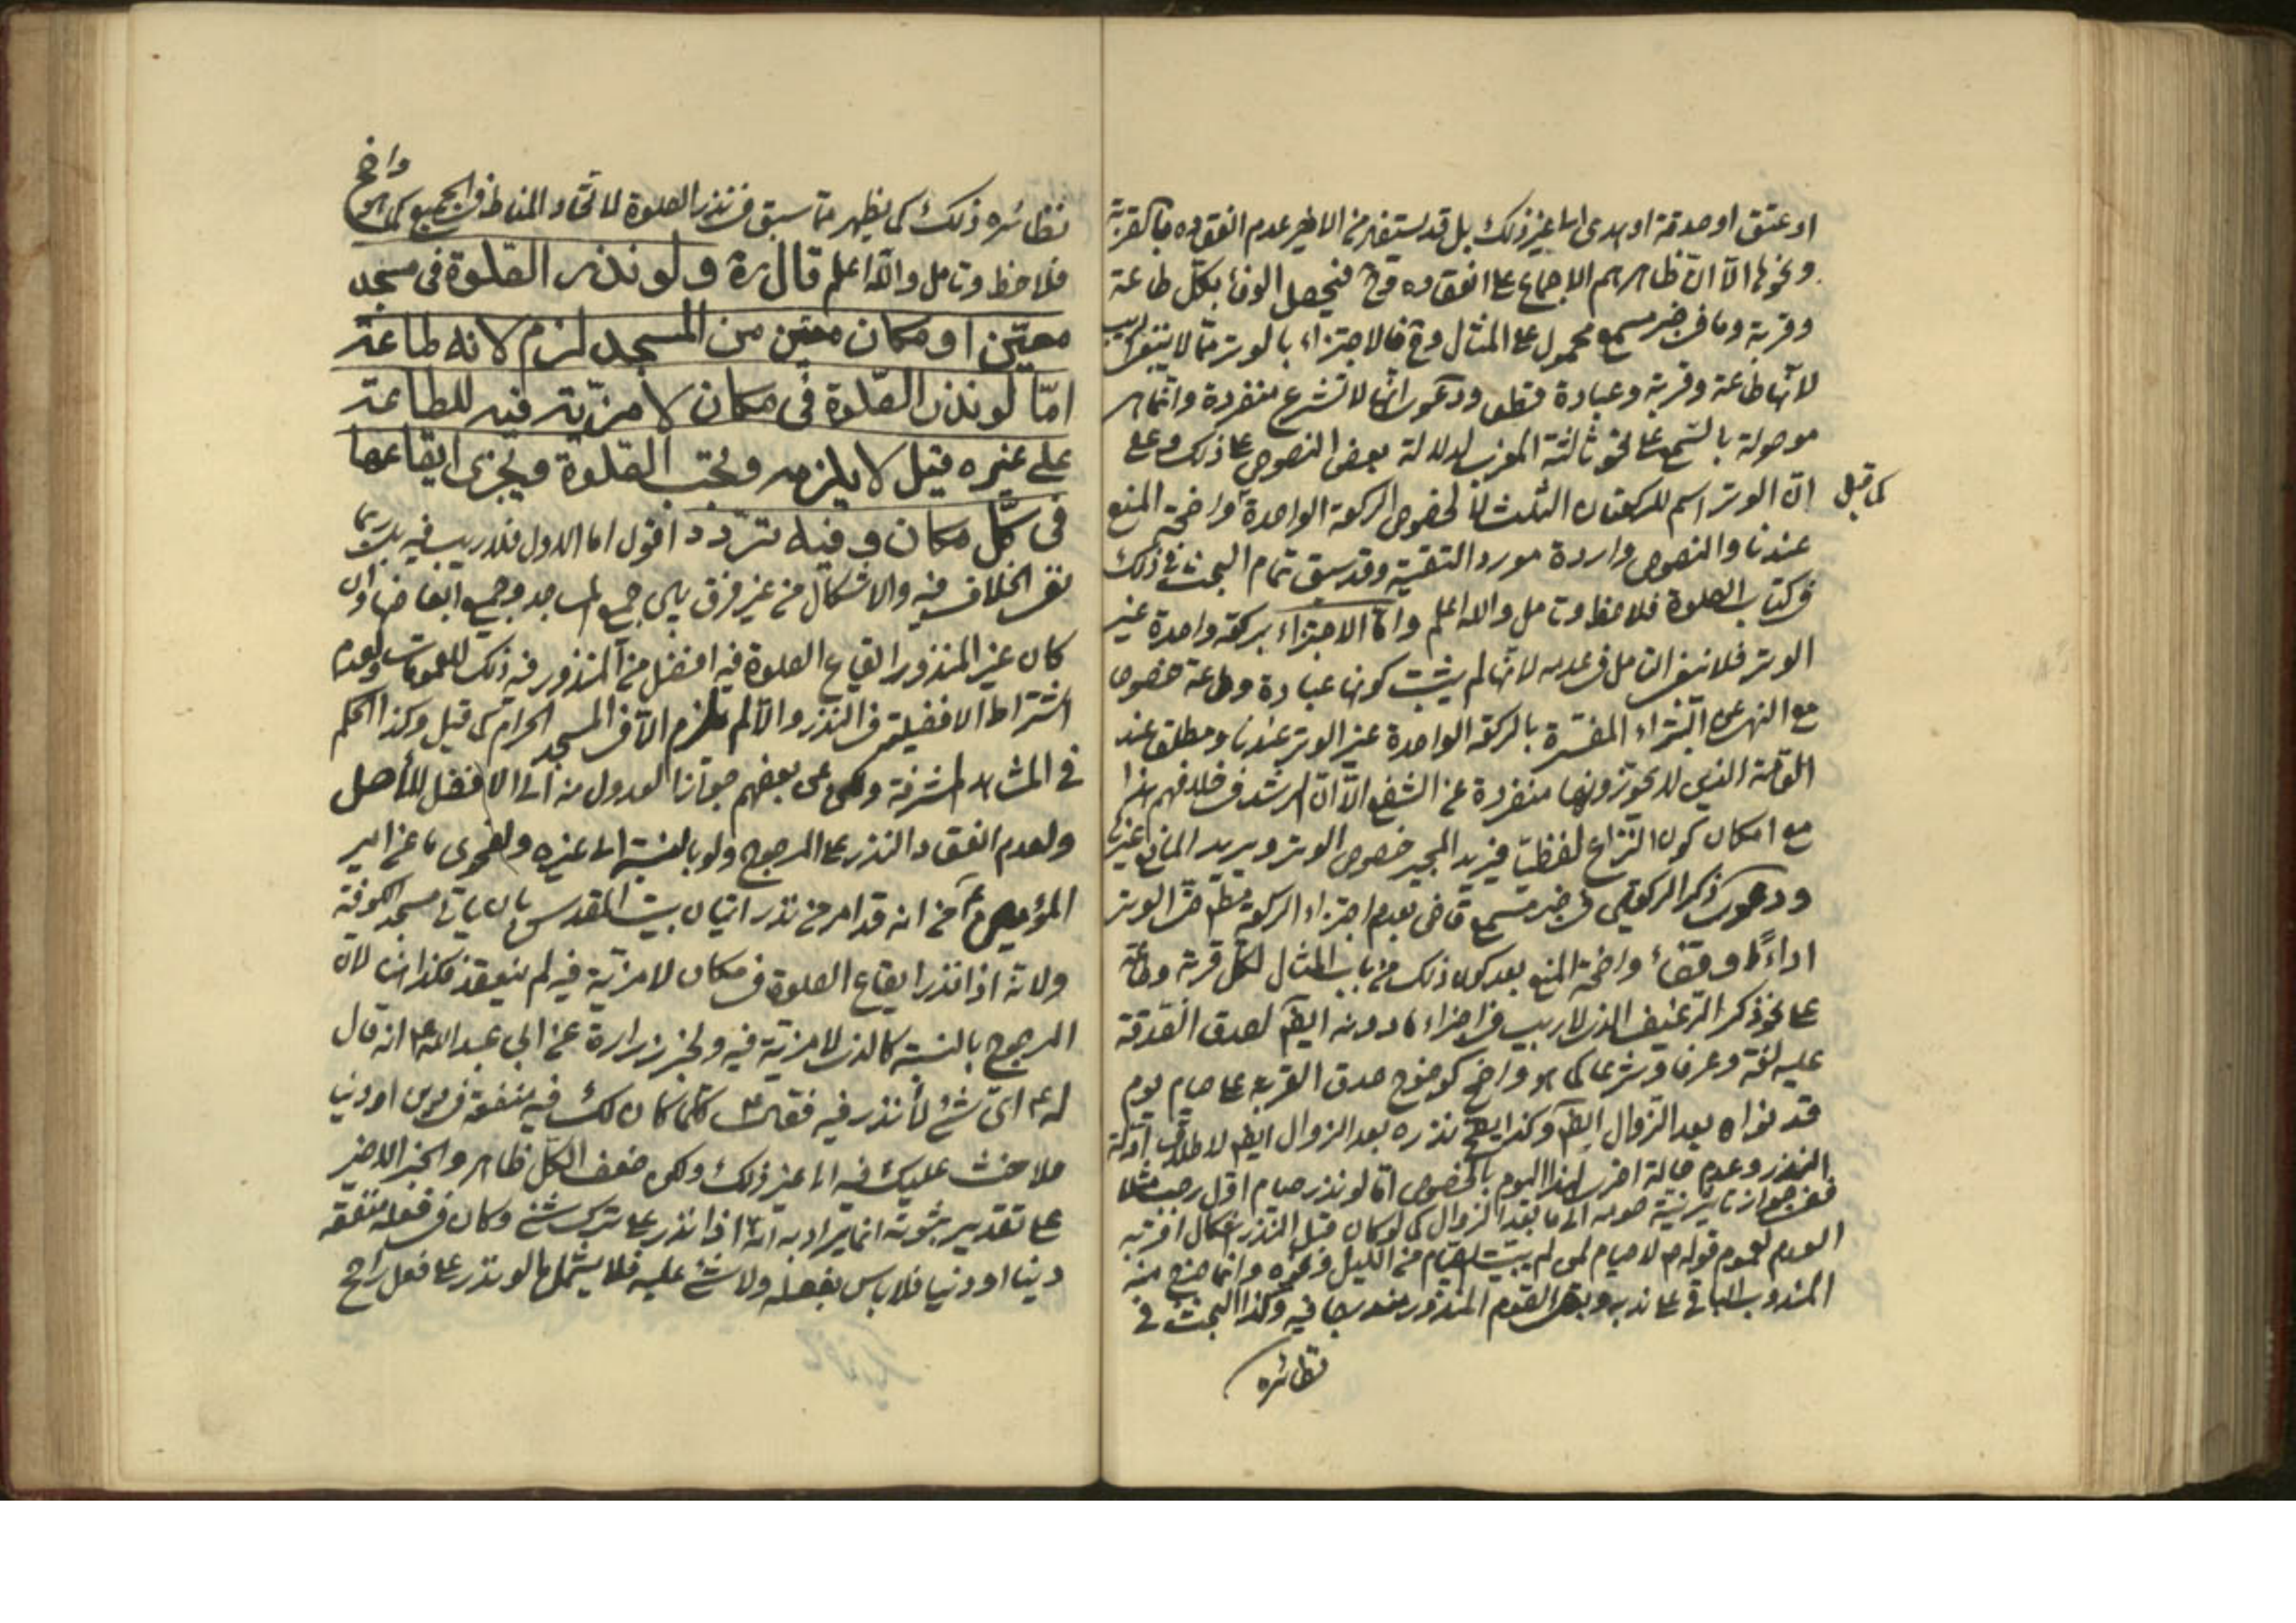 او عتق او صدقة او هدى الى غير ذلك بل قد يستفاد من الاخير عدم انعقاده بالقربة
ونحوها الا ان ظاهرهم الاجماع على انعقاده فيحصل الوفاء بكل طاعة
وقربة وما في خبر مسمع محمول على المثال وح فالاجتزاء بالوتر مما لا ينبغي
لانها طاعة وقربة وعبادة قطعا ودعوى انها لا تشرع منفردة وانما هي
موصولة بالشفع على نحو ثالثة المغرب لدلالة بعض النصوص على ذلك وعلى
ان الوتر اسم للركعات الثلث لا لخصوص الركعة الواحدة واضحة المنع
كما قيل
عندنا والنصوص واردة مورد التقية وقد سبق تمام البحث في ذلك
في كتاب الصلوة فلاحظ وتامل والله اعلم واما الاجتزاء بركعة واحدة غير
الوتر فلا ينبغي التامل في عدمه لانها لم يثبت كونها عبادة وطاعة خصوصا
مع النهى عن البتراء المفسرة بالركعة الواحدة غير الوتر عندنا ومطلقا عند
العامة الذين لا يجوزونها منفردة عن الشفع الا ان الرشد في خلافهم هذا
مع امكان كون النزاع لفظيا فيريد المجيز خصوص الوتر ويريد المانع غيرها
ودعوى ذكر الركعتين في خبر مسمع قاض بعدم اجتزاء الركعة مطلقا حتى الوتر
اداء وقضاء واضحة المنع بعد كون ذلك من باب المثال لكل قربة وطاعة
على نحو ذكر الرغيف الذى لا ريب في اجزاء ما دونه ايضا لصدق الصدقة
عليه لغة وعرفا وشرعا كما هو واضح كوضوح صدق القربة على صيام يوم
قد نواه بعد الزوال ايضا وكذا يصح نذره بعد الزوال ايضا لاطلاق ادلة
النذر وعدم حالة اخرى لهذا اليوم بالخصوص اما لو نذر صيام اول رجب مثلا
ففي جواز تاخير نية صومه الى ما بعد الزوال كما لو كان قبل النذر اشكال اقربه
العدم لعموم قوله لا صيام لمن لم يبيت الصيام من الليل ونحوه وانما خرج منه
المندوب الباقي على ندبه وبقى الصوم المنذور مندرجا فيه وكذا البحث في
نظائره
نظائره ذلك كما يظهر مما سبق في نذر الصلوة لاتحاد المناط في الجميع كما هو
واضح
فلاحظ وتامل والله اعلم قال ره ولو نذر الصلوة في مسجد
معين او مكان معين من المسجد لزم لانه طاعة
اما لو نذر الصلوة في مكان لا مزية فيه للطاعة
على غيره قيل لا يلزم وتجب الصلوة ويجزى ايقاعها
في كل مكان وفيه تردد اقول اما الاول فلا ريب فيه بل ربما
نفى الخلاف فيه والاشكال من غير فرق بين جميع المساجد وجميع ابعاضها وان
كان غير المنذور ايقاع الصلوة فيه افضل من المنذور فيه ذلك للعمومات ولعدم
اشتراط الافضلية في النذر والا لم يلزم الا في المسجد الحرام كما قيل وكذا الحكم
في المشاهد المشرفة وعن بعضهم جواز العدول منه الى الافضل للأصل
ولعدم انعقاد النذر على المرجوح ولو بالنسبة الى غيره ولفحوى ما عن امير
المؤمنين ع من انه قد امر من نذر اتيان بيت المقدس بان ياتي مسجد الكوفة
ولانه اذا نذر ايقاع الصلوة في مكان لا مزية فيه لم ينعقد فكذا هنا لان
المرجوح بالنسبة كالذى لا مزية فيه ولخبر زرارة عن ابي عبد الله ع انه قال
له ع اى شئ لا نذر فيه فقال ع كلما كان لك فيه منفعة في دين او دنيا
فلا حنث عليك فيه الى غير ذلك ولكن ضعف الكل ظاهر والخبر الاخير
على تقدير ثبوته انما يراد به انه اذا نذر على ترك شئ وكان في فعله منفعة
دينا او دنيا فلا باس بفعله ولا شئ عليه فلا يشمل ما لو نذر على فعل راجح